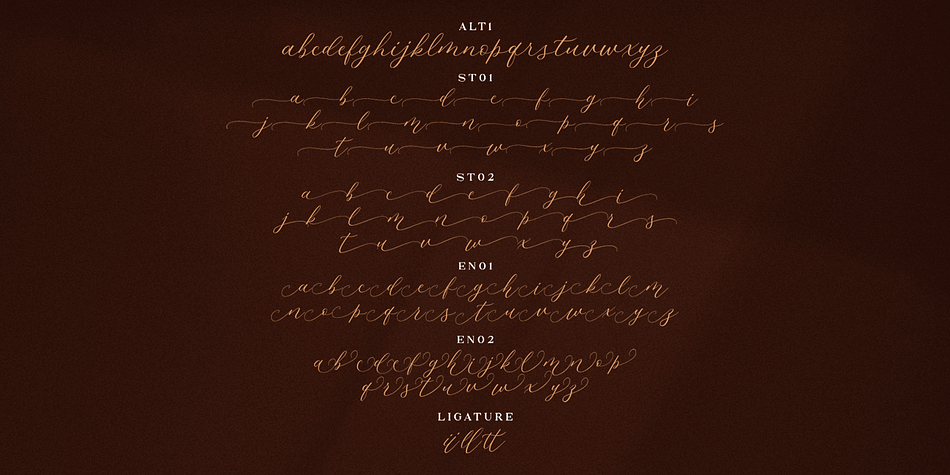 ALT1
abcdefghijklmnopqrstuvwxyz
ST01
a b c d e f g h i
j k l m n o p q r s
t u v w x y z
ST02
a b c d e f g h i
j k l m n o p q r s
t u v w x y z
EN01
a b c d e f g h i j k l m
n o p q r s t u v w x y z
EN02
a b c d e f g h i j k l m n o p
q r s t u v w x y z
LIGATURE
ii ll tt